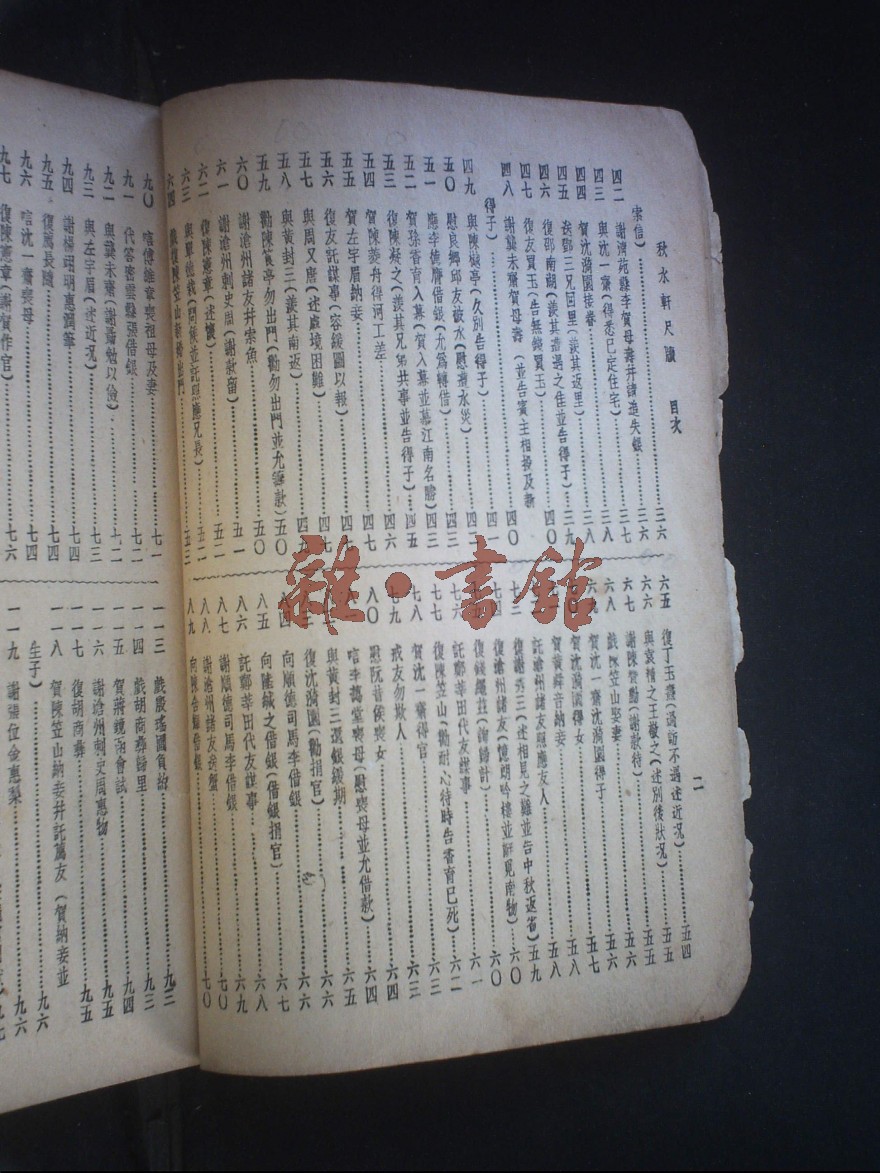 秋水軒尺牘 目次
二
索信)……三六
四二 謝濟苑縣李賀母壽并續造失銀……三六
四三 與沈一齋(得悉已定住宅)……三七
四四 賀沈漪園接眷……三八
四五 送鄧三兄回里(羨其返里)……三八
四六 復邵南湖(羨其遭遇之佳並告得子)……三九
四七 復友買玉(告無錢買玉)……四〇
四八 謝龔未齋賀母壽(並告賓主相投及新
得子)……四〇
四九 與陳樾亭(久別告得子)……四一
五〇 慰良鄉邱友被水(慰被水災)……四二
五一 應李松膺借銀(允爲轉借)……四三
五二 賀孫香育入幕(賀入幕並慕江南名勝)四三
五三 復陳凝之(羨其兄弟共事並告得子)…四五
五四 賀陳菱舟得河工差……四六
五五 賀左宇眉納妾……四七
五六 復友託謀事(容緩圖以報)……四七
五七 與周又唐(述處境困難)……四九
五八 與黃封三(羨其南返)……四九
五九 勸陳笠亭勿出門(勸勿出門並允籌款)五〇
六〇 謝滄州諸友并索魚……五〇
六一 謝滄州刺史周(謝款留)……五一
六二 復陳憲章(述懷)……五二
六三 與單德我(問候並託照應兄長)……五二
六四 復陳笠山勸出門……五三
六五 復丁玉農(過訪不遇述近況)……五四
六六 與袁精之王敬之(述別後狀況)……五五
六七 謝陳贊勳(謝款待)……五五
六八 戲陳笠山娶妻……五六
六九 賀沈一齋沈漪園得子……五七
賀沈漪園得女……五八
賀黃舜音納妾……五八
七二 託滄州諸友照應友人……五九
七三 復謝秀三(述相見之難並告中秋返省)五九
七四 復滄州諸友(憶朗吟樓並附覓南物)六〇
七五 復錢繩茲(詢歸計)……六〇
七六 託鄒莘田代友謀事……六一
七七 復陳笠山(勸耐心待時告書育已死)…六二
七八 賀沈一齋得官……六三
七九 戒友勿欺人……六三
八〇 慰阮昔侯喪女……六四
唁李萬堂喪母(慰喪母並允借款)……六四
與黃封三還銀緩期……六五
復沈漪園(勸捐官)……六六
八四 向順德司馬李借銀……六六
八五 向陸鍼之借銀(借銀捐官)……六七
八六 託鄒莘田代友謀事……六八
八七 謝順德司馬李借銀……六九
八八 謝滄州諸友送蟹……七〇
八九 向陳合疇借銀……七〇
九〇 唁傅維章喪祖母及妻……七一
九一 代答密雲縣張借銀……七二
九二 與龔未齋(謝勗勉以儉)……七二
九三 與左宇眉(述近況)……七三
九四 謝楊珊瑚惠潤筆……七四
九五 復薦長隨……七四
九六 唁沈一齋喪母……七四
九七 復陳憲章(謝賀作官)……七六
一一三 戲嚴瑤圃負約……九三
一一四 戲胡商彝歸里……九三
一一五 賀蔣鏡函會試……九四
一一六 謝滄州刺史周惠物……九五
一一七 復胡商彝……九五
一一八 賀陳笠山納妾并託薦友(賀納妾並
生子)……九六
一一九 謝張位金惠梨……九六
雜·書館